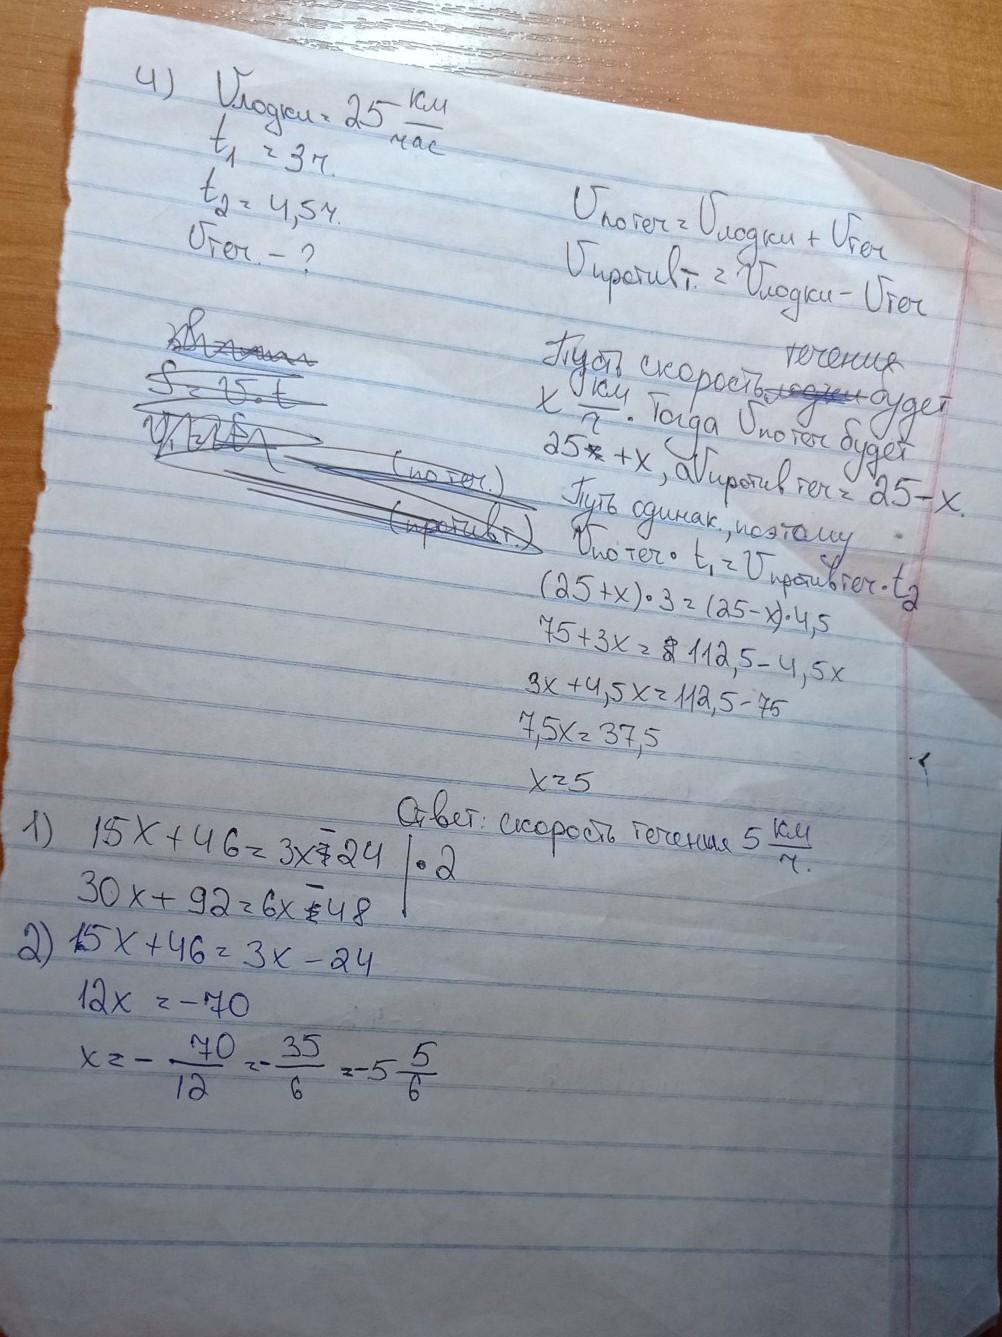 4) Vлодки = 25 км/час
t₁ = 3ч.
t₂ = 4,5ч.
Vтеч. - ?
Vпо теч = Vлодки + Vтеч
Vпротив т. = Vлодки - Vтеч
S = V · t
(по теч.)
(против т.)
течения
Пусть скорость лодки будет
x км/ч. Тогда Vпо теч будет
25 + x, а Vпротив теч = 25 - x.
Путь одинак., поэтому
Vпо теч · t₁ = Vпротив теч · t₂
(25+x) · 3 = (25-x) · 4,5
75 + 3x = 112,5 - 4,5x
3x + 4,5x = 112,5 - 75
7,5x = 37,5
x = 5
Ответ: скорость течения 5 км/ч.
1) 15x + 46 = 3x - 24 | · 2
30x + 92 = 6x - 48
2) 15x + 46 = 3x - 24
12x = -70
x = - 70/12 = - 35/6 = -5 5/6